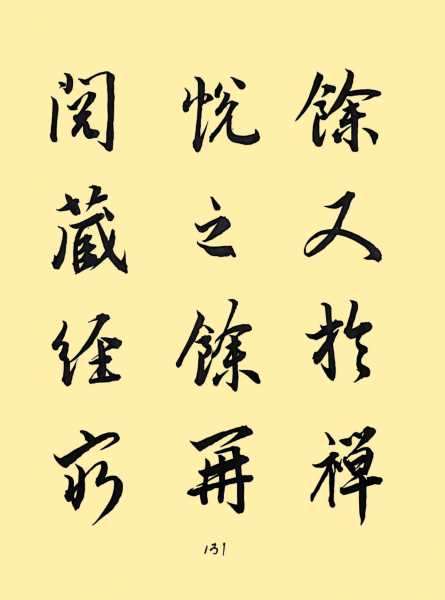 餘又於禪
悅之餘再
閱藏經
131